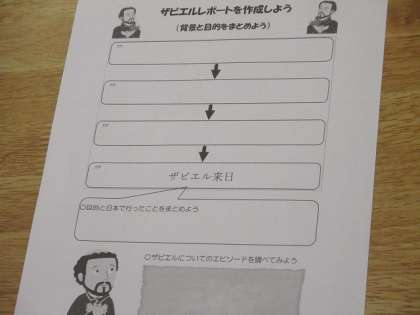 ザビエルレポートを作成しよう
（背景と目的をまとめよう）
ザビエル来日
○目的と日本で行ったことをまとめよう
○ザビエルについてのエピソードを調べてみよう